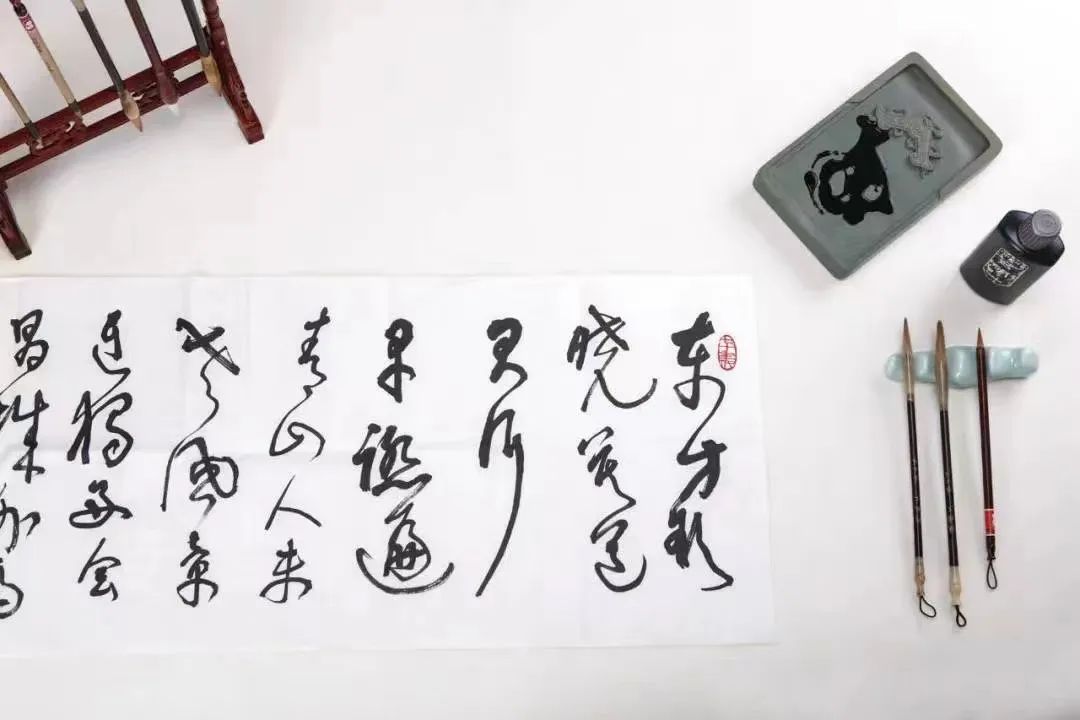 东方欲
晓莫道
君行
早踏遍
青山人未
老风景
边独好会
昌城外高